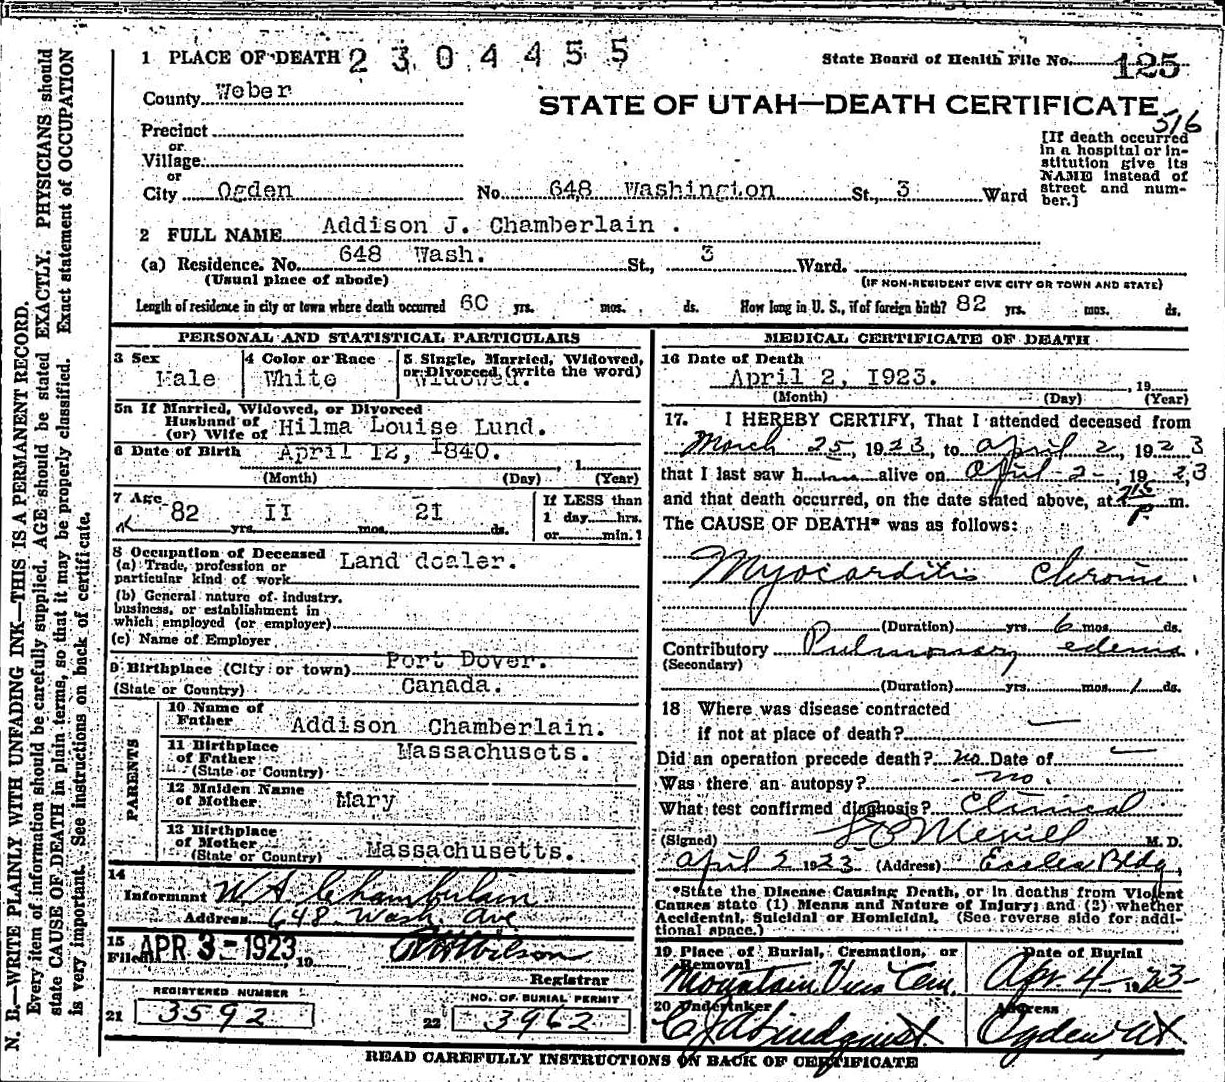 1 PLACE OF DEATH 2304455
State Board of Health File No. 125
County Weber
STATE OF UTAH—DEATH CERTIFICATE
516
Precinct
or
Village
or
City Ogden No. 648 Washington St., 3 Ward
[If death occurred
in a hospital or in-
stitution give its
NAME instead of
street and num-
ber.]
2 FULL NAME Addison J. Chamberlain .
(a) Residence. No. 648 Wash. St., 3 Ward.
(Usual place of abode) (IF NON-RESIDENT GIVE CITY OR TOWN AND STATE)
Length of residence in city or town where death occurred 60 yrs. mos. ds. How long in U. S., if of foreign birth? 82 yrs. mos. ds.
PERSONAL AND STATISTICAL PARTICULARS
3 Sex 4 Color or Race 5 Single, Married, Widowed,
or Divorced (write the word)
Male White Widowed.
5a If Married, Widowed, or Divorced
Husband of
(or) Wife of Hilma Louise Lund.
6 Date of Birth April 12, I840. , 1
(Month) (Day) (Year)
7 Age If LESS than
82 yrs. II mos. 21 ds. 1 day hrs.
or min.?
8 Occupation of Deceased
(a) Trade, profession or
particular kind of work Land dealer.
(b) General nature of industry,
business, or establishment in
which employed (or employer)
(c) Name of Employer
9 Birthplace (City or town) Port Dover.
(State or Country) Canada.
PARENTS
10 Name of
Father Addison Chamberlain.
11 Birthplace
of Father Massachusets.
(State or Country)
12 Maiden Name
of Mother Mary
13 Birthplace
of Mother
(State or Country) Massachusetts.
14
Informant W. A. Chamberlain
Address 648 Wash. Ave
15
Filed APR 3 - 1923 , 19
Wilson
Registrar
REGISTERED NUMBER
21 3592
NO. OF BURIAL PERMIT
22 3962
MEDICAL CERTIFICATE OF DEATH
16 Date of Death
April 2, I923. , 19
(Month) (Day) (Year)
17. I HEREBY CERTIFY, That I attended deceased from
March 25, 1923, to April 2, 1923
that I last saw him alive on April 2 -, 1923,
and that death occurred, on the date stated above, at 7 15 P m.
The CAUSE OF DEATH* was as follows:
Myocarditis Chronic.
(Duration) yrs. 6 mos. ds.
Contributory Pulmonary edema.
(Secondary)
(Duration) yrs. mos. 1 ds.
18 Where was disease contracted
if not at place of death? —
Did an operation precede death? no Date of —
Was there an autopsy? - no.
What test confirmed diagnosis? Clinical
(Signed) Merrill M. D.
April 2 1923 (Address) Eccles Bldg
*State the Disease Causing Death, or in deaths from Violent
Causes state (1) Means and Nature of Injury; and (2) whether
Accidental, Suicidal or Homicidal. (See reverse side for addi-
tional space.)
19 Place of Burial, Cremation, or
Removal
Mountain View Cem.
Date of Burial
Apr 4 - 1923 -
20 Undertaker
Lindquist
Address
Ogden, Ut
READ CAREFULLY INSTRUCTIONS ON BACK OF CERTIFICATE
N. B.—WRITE PLAINLY WITH UNFADING INK—THIS IS A PERMANENT RECORD.
Every item of information should be carefully supplied. AGE should be stated EXACTLY. PHYSICIANS should
state CAUSE OF DEATH in plain terms, so that it may be properly classified. Exact statement of OCCUPATION
is very important. See instructions on back of certificate.